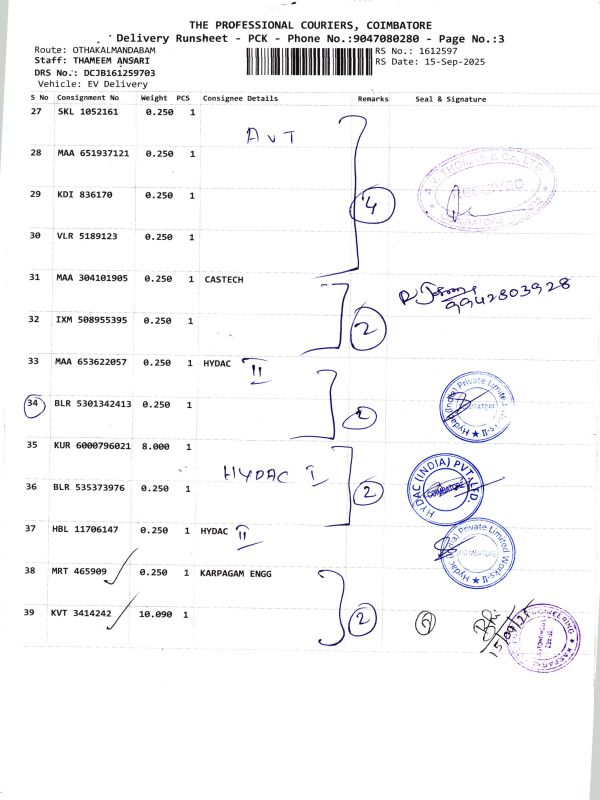 THE PROFESSIONAL COURIERS, COIMBATORE
Delivery Runsheet - PCK - Phone No.:9047080280 - Page No.:3
Route: OTHAKALMANDABAM
RS No.: 1612597
Staff: THAMEEM ANSARI
RS Date: 15-Sep-2025
DRS No.: DCJB161259703
Vehicle: EV Delivery
S No Consignment No Weight PCS Consignee Details Remarks Seal & Signature
27 SKL 1052161 0.250 1
AVT
28 MAA 651937121 0.250 1
29 KDI 836170 0.250 1
4
RECEIVED
30 VLR 5189123 0.250 1
31 MAA 304101905 0.250 1 CASTECH
9942803928
32 IXM 508955395 0.250 1
2
33 MAA 653622057 0.250 1 HYDAC II
34 BLR 5301342413 0.250 1
2
Hydac (India) Private Limited
COIMBATORE
35 KUR 6000796021 8.000 1
HYDAC I
36 BLR 535373976 0.250 1
2
HYDAC (INDIA) PVT. LTD.
COIMBATORE
37 HBL 11706147 0.250 1 HYDAC II
Hydac (India) Private Limited Works-II
COIMBATORE
38 MRT 465909 0.250 1 KARPAGAM ENGG
39 KVT 3414242 10.090 1
2
2